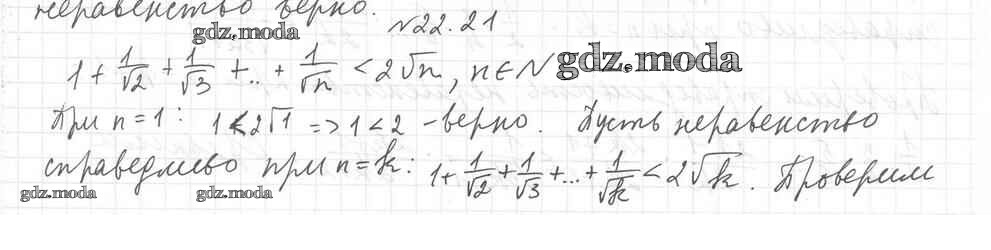 неравенство верно.
N22.21
gdz.moda
1 + 1/√2 + 1/√3 + ... + 1/√n < 2√n, n ∈ N gdz.moda
При n = 1: 1 < 2√1 => 1 < 2 - верно. Пусть неравенство
справедливо при n = k: 1 + 1/√2 + 1/√3 + ... + 1/√k < 2√k. Проверим
gdz.moda gdz.moda gdz.moda